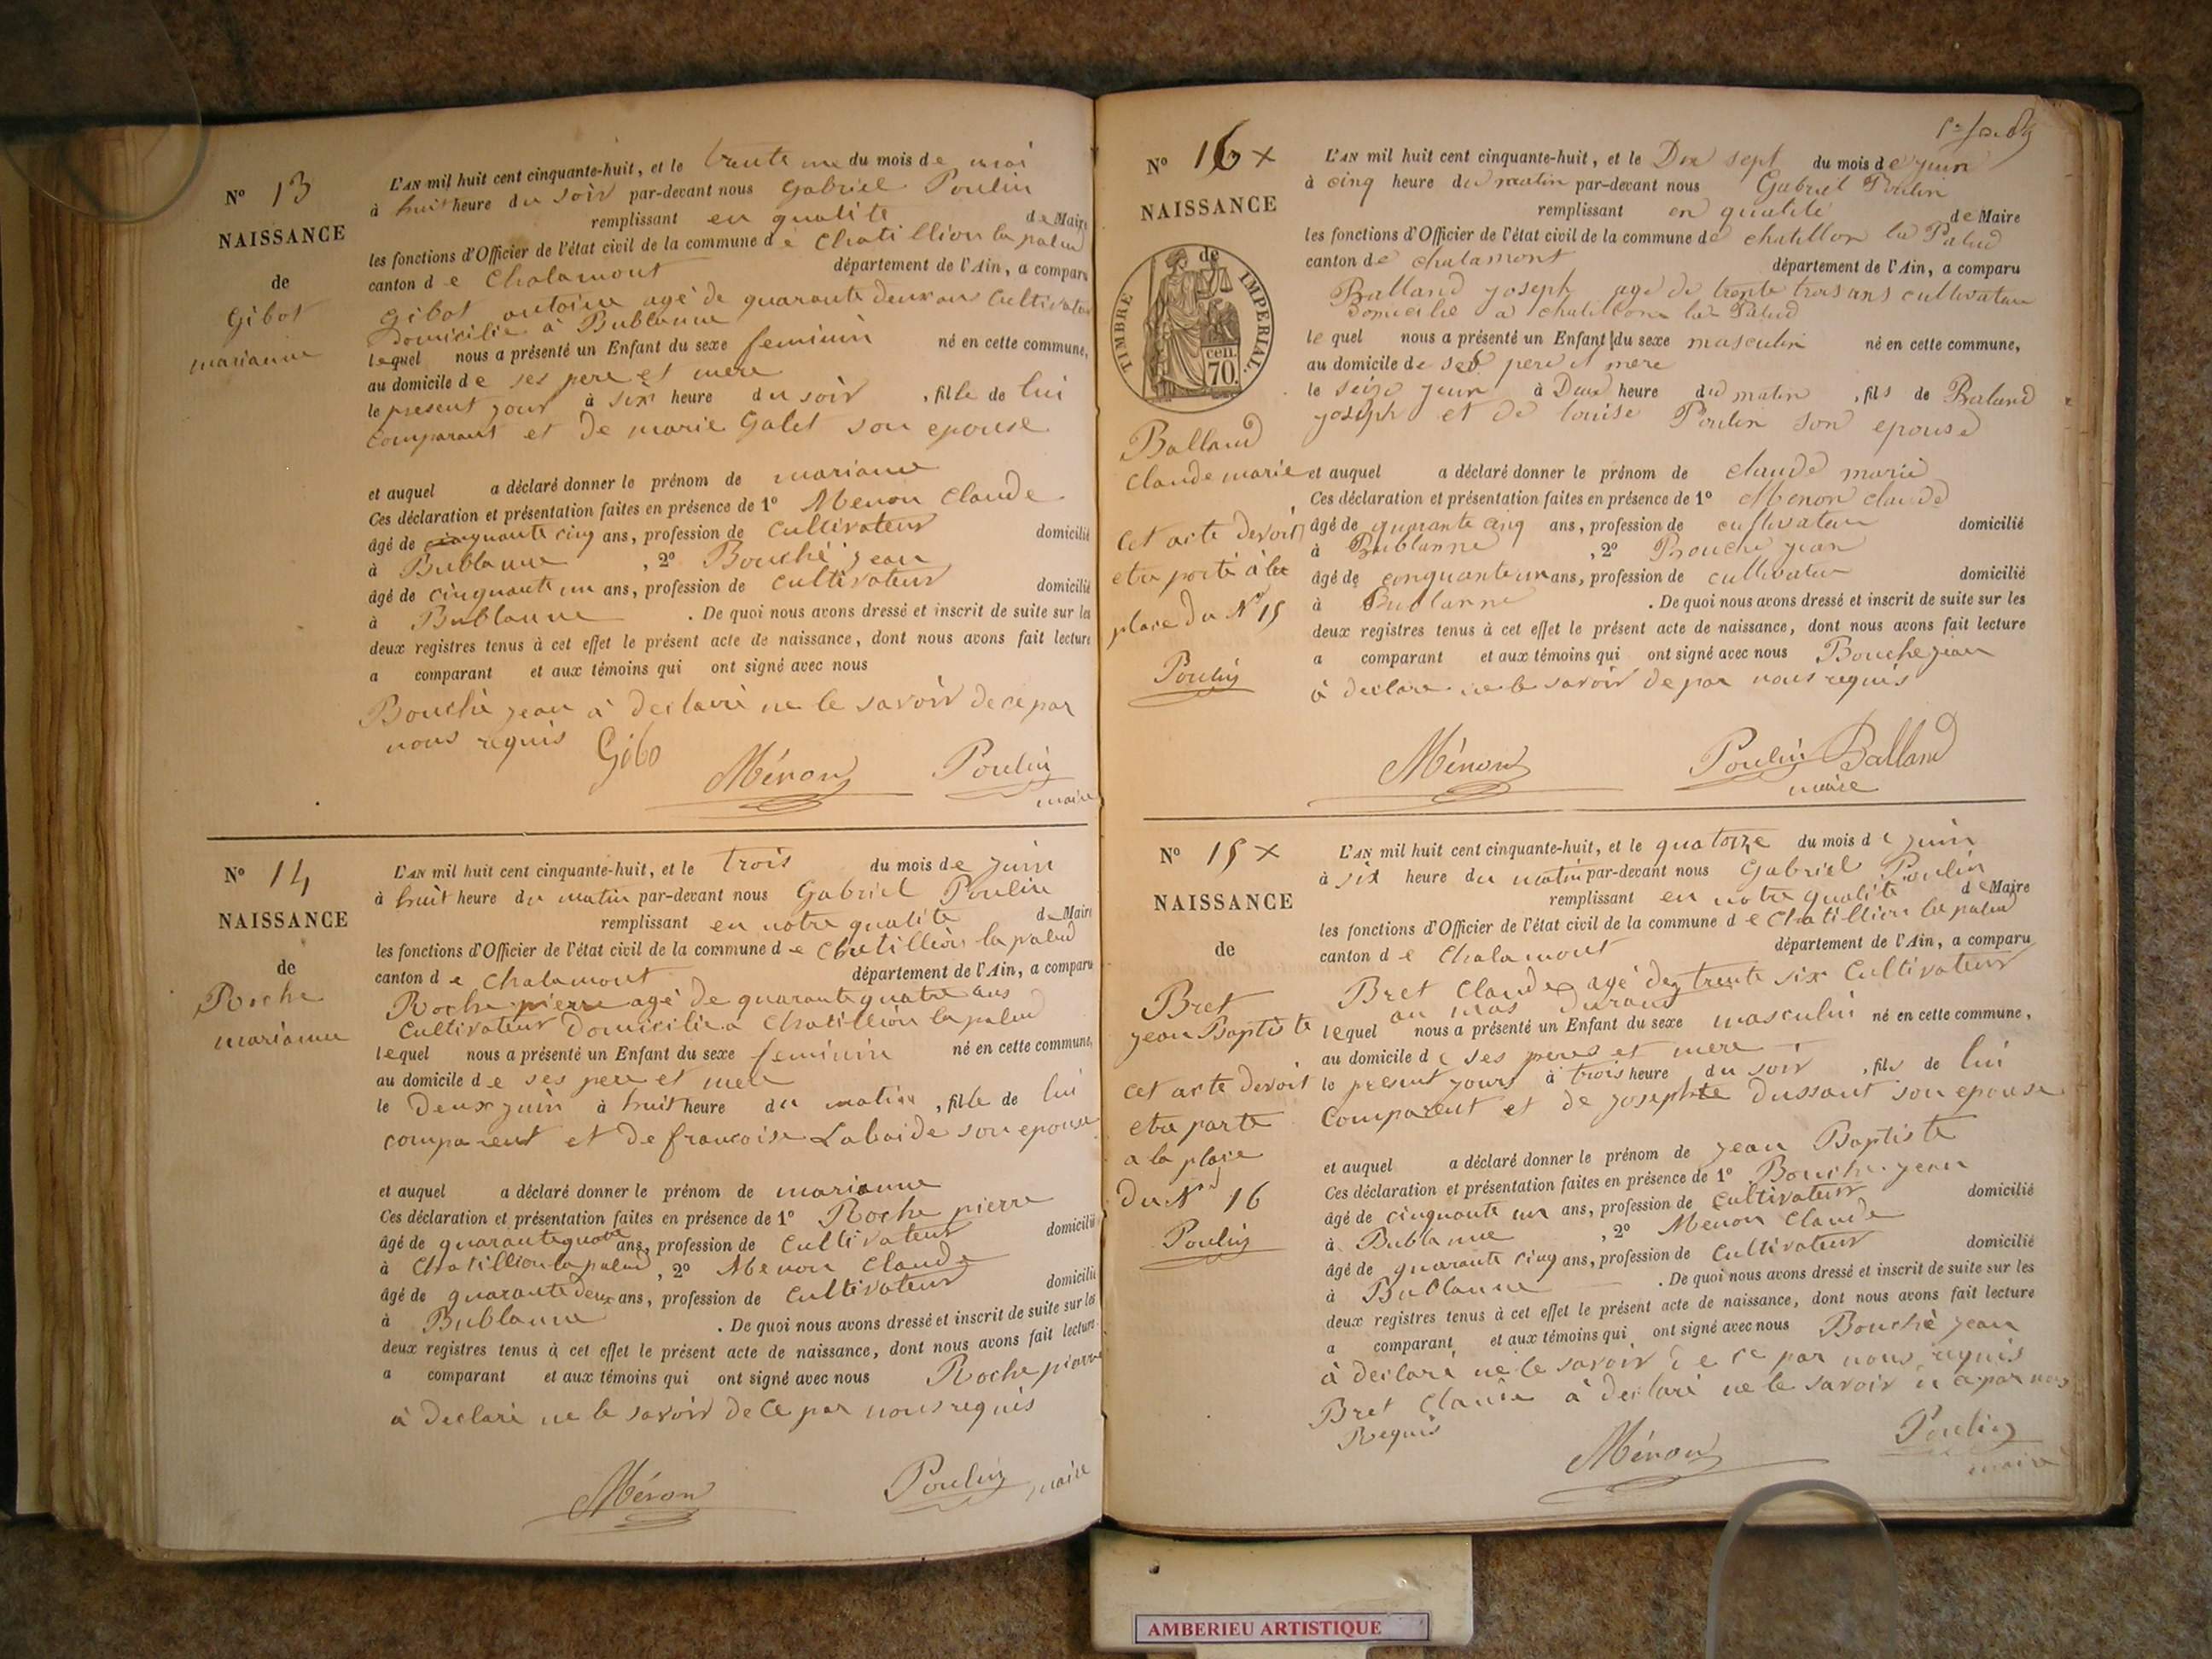 N° 13
NAISSANCE
de
Gibot
marianne
L'AN mil huit cent cinquante-huit, et le trente un du mois de mai
à huit heure du soir par-devant nous Gabriel Poulin
remplissant en qualité de Maire
les fonctions d'Officier de l'état civil de la commune de Chatillion la palud
canton de Chalamont département de l'Ain, a comparu
Gibot antoine agé de quarante deux ans Cultivateur
Domicilié à Bublanne
lequel nous a présenté un Enfant du sexe feminin né en cette commune,
au domicile de ses pere et mere
le present jour à six heure du soir, fille de lui
comparant et de marie Galet son epouse
et auquel a déclaré donner le prénom de marianne
Ces déclaration et présentation faites en présence de 1° Menon Claude
âgé de quarante cinq ans, profession de Cultivateur domicilié
à Bublanne, 2° Bouché jean
âgé de cinquante un ans, profession de Cultivateur domicilié
à Bublanne. De quoi nous avons dressé et inscrit de suite sur les
deux registres tenus à cet effet le présent acte de naissance, dont nous avons fait lecture
a comparant et aux témoins qui ont signé avec nous
Bouché jean à declaré ne le savoir de ce par
nous requis Gibo
Ménon Poulin
maire
N° 14
NAISSANCE
de
Roche
marianne
L'AN mil huit cent cinquante-huit, et le trois du mois de juin
à huit heure du matin par-devant nous Gabriel Poulin
remplissant en notre qualité de Maire
les fonctions d'Officier de l'état civil de la commune de Chatillion la palud
canton de Chalamont département de l'Ain, a comparu
Roche pierre agé de quarante quatre ans
Cultivateur Domicilié a Chatillion la palud
lequel nous a présenté un Enfant du sexe feminin né en cette commune,
au domicile de ses pere et mere
le Deux juin à huit heure du matin, fille de lui
comparent et de francoise Labaide son epouse
et auquel a déclaré donner le prénom de marianne
Ces déclaration et présentation faites en présence de 1° Roche pierre
âgé de quarante quatre ans, profession de Cultivateur domicilié
à Chatillion la palud, 2° Menon Claude
âgé de quarante deux ans, profession de Cultivateur domicilié
à Bublanne. De quoi nous avons dressé et inscrit de suite sur les
deux registres tenus à cet effet le présent acte de naissance, dont nous avons fait lecture
a comparant et aux témoins qui ont signé avec nous Roche pierre
à declaré ne le savoir de ce par nous requis
Ménon Poulin maire
N° 16 x
NAISSANCE
de
TIMBRE IMPERIAL
70 cen.
Balland
Claude marie
Cet acte devoit
etre porté à la
place du N° 15
Poulin
L'AN mil huit cent cinquante-huit, et le Dix sept du mois de juin
à cinq heure du matin par-devant nous Gabriel Poulin
remplissant en qualité de Maire
les fonctions d'Officier de l'état civil de la commune de chatillon la Palud
canton de chalamont département de l'Ain, a comparu
Balland joseph agé de trente trois ans cultivateur
Domicilié a chatillon la Palud
lequel nous a présenté un Enfant du sexe masculin né en cette commune,
au domicile de ses pere et mere
le seize juin à Deux heure du matin, fils de Baland
joseph et de louise Poulin son epouse
et auquel a déclaré donner le prénom de claude marie
Ces déclaration et présentation faites en présence de 1° Menon claude
âgé de quarante cinq ans, profession de cultivateur domicilié
à Bublanne, 2° Bouché jean
âgé de cinquante un ans, profession de cultivateur domicilié
à Bublanne. De quoi nous avons dressé et inscrit de suite sur les
deux registres tenus à cet effet le présent acte de naissance, dont nous avons fait lecture
a comparant et aux témoins qui ont signé avec nous Bouché jean
à declaré ne le savoir de par nous requis
Ménon Poulin Balland
maire
N° 15 x
NAISSANCE
de
Bret
jean Baptiste
cet acte devoit
etre porte
a la place
du N° 16
Poulin
L'AN mil huit cent cinquante-huit, et le quatorze du mois de juin
à six heure du matin par-devant nous Gabriel Poulin
remplissant en notre qualité de Maire
les fonctions d'Officier de l'état civil de la commune de Chatillion la palud
canton de Chalamont département de l'Ain, a comparu
Bret Claude agé de trente six Cultivateur
au mas durand
lequel nous a présenté un Enfant du sexe masculin né en cette commune,
au domicile de ses peres et mere
le present jours à trois heure du soir, fils de lui
Comparent et de josephte dussant son epouse
et auquel a déclaré donner le prénom de jean Baptiste
Ces déclaration et présentation faites en présence de 1° Bouche jean
âgé de cinquante un ans, profession de Cultivateur domicilié
à Bublanne, 2° Menon Claude
âgé de quarante cinq ans, profession de Cultivateur domicilié
à Bublanne. De quoi nous avons dressé et inscrit de suite sur les
deux registres tenus à cet effet le présent acte de naissance, dont nous avons fait lecture
a comparant et aux témoins qui ont signé avec nous Bouchè jean
à declaré ne le savoir de ce par nous requis
Bret Claude à declaré ne le savoir par nous
Requis
Ménon Poulin
maire
AMBERIEU ARTISTIQUE